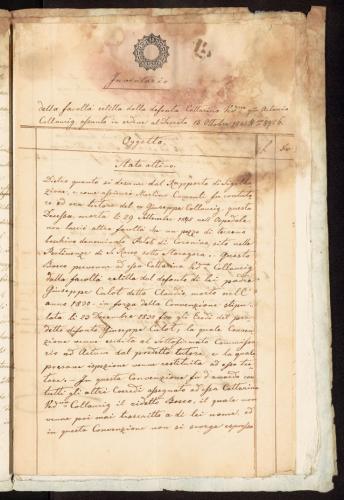 Inventario
della facoltà relitta dalla defunta Catterina Ved.ma Antonio
Collaucig assunto in ordine al Decreto 13 Ottobre N.
Oggetto
f
Stato attivo.
Dietro quanto si desume dal Rapporto di Sigilla
zione, e come assicurò Martino fu costituto
ed ora tutore del Giuseppe Collaucig, questa
Donessa, morta li 29 Settembre nell'Ospedale
non lasciò altra facoltà che un pezzo di terreno
boschivo denominato di Coronina, sito nelle
Pertinenze di S. Mauro sotto . Questo
Bosco pervenne ad essa Catterina Ved.ma Collaucig
dalla facoltà relitta dal defunto di lei padre
Giuseppe Culot della Claudia morto nell'
anno 1830 in forza della Convenzione stipu
lata li 23 Decembre 1830 fra gli Eredi del pre
detto defunto Giuseppe Culot, la quale Conven
zione venne esibita al sottofirmato Commissa
rio ad Actum dal predetto tutore, e la quale
presane ispezione venne restituita ad esso tu
tore. In questa Convenzione fu d'accordo con
tutti gli altri Coeredi assegnato ad essa Catterina
Ved.ma Collaucig il ridetto Bosco, il quale non
venne poi mai trascritto a di lei nome, ed
in questa Convenzione non si scorge espresso